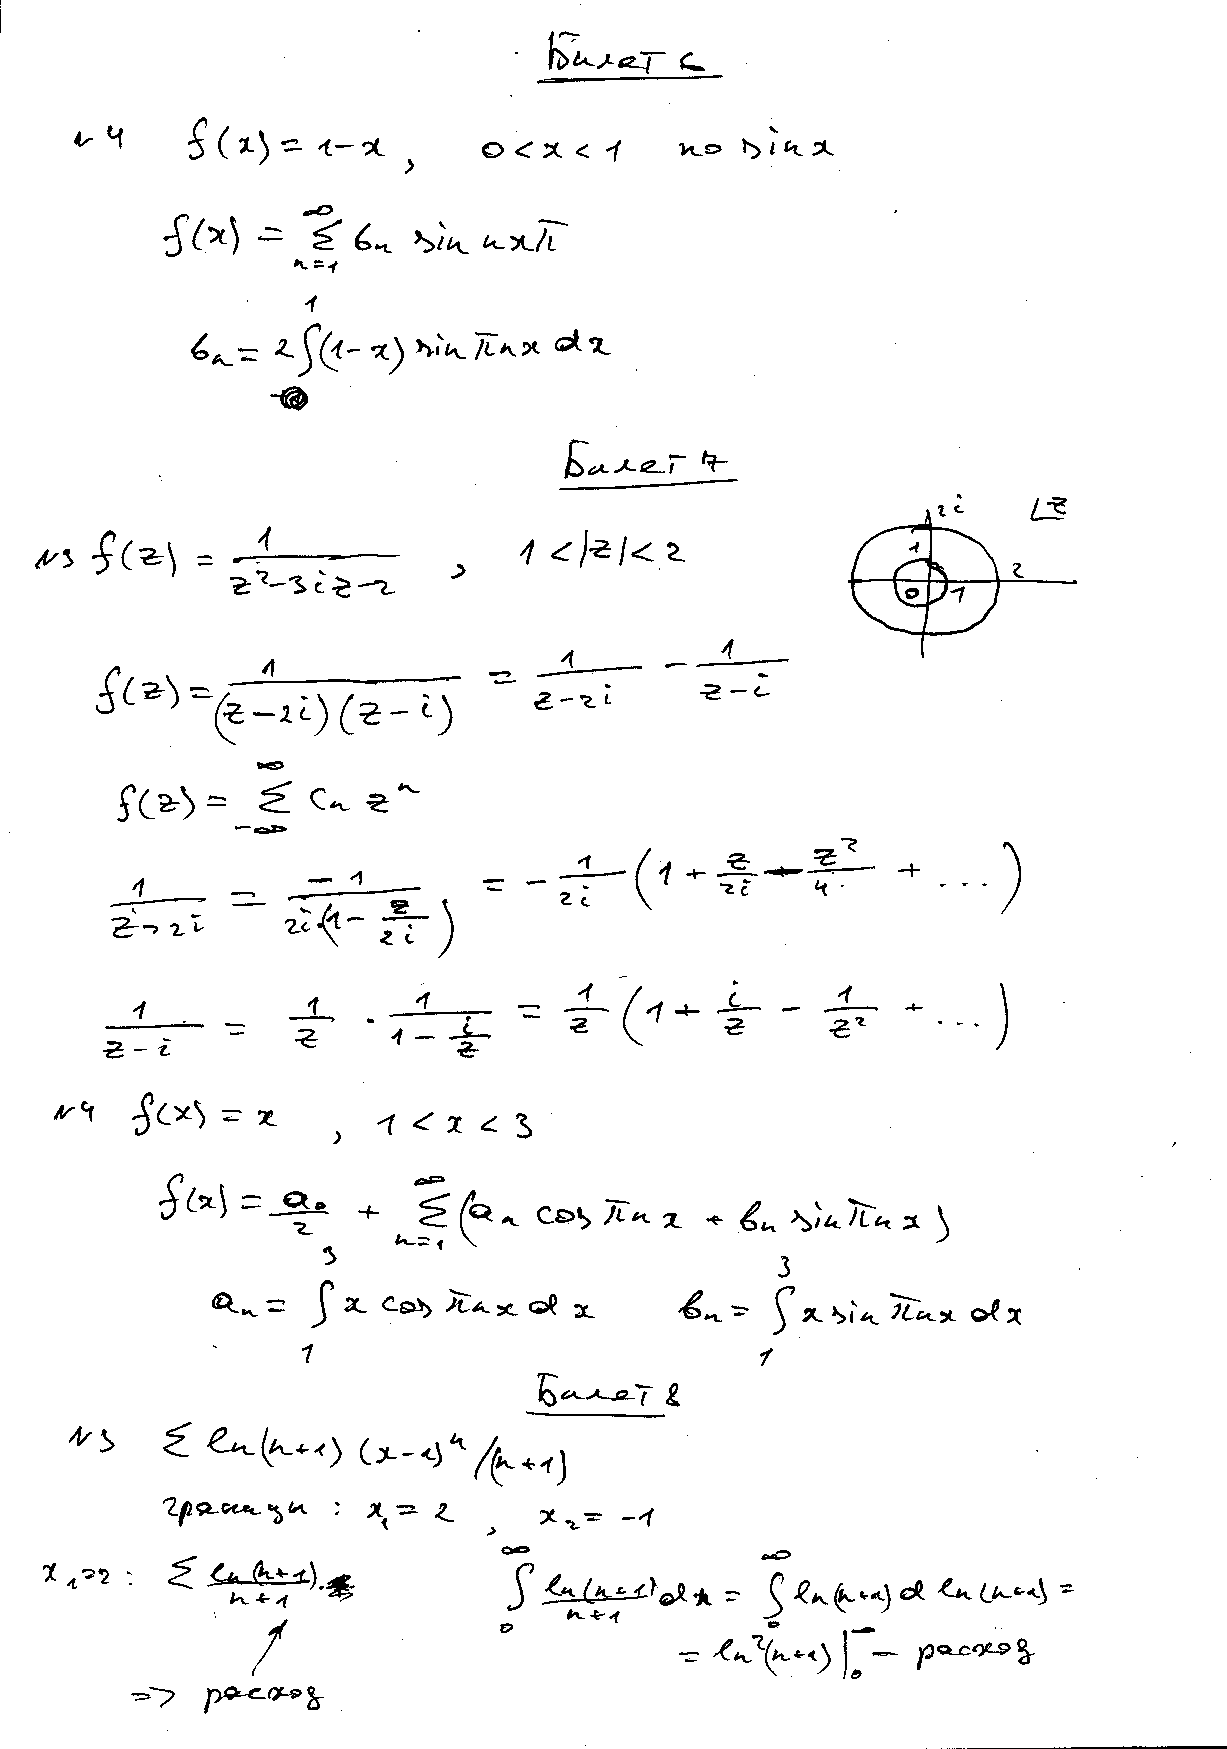 Билет 6
N4 f(x) = 1-x, 0<x<1 по sin x
f(x) = ∑_{n=1}^{∞} bn sin nxπ
bn = 2∫^{1}(1-x) sin πnx dx
Билет 7
2i ∠z
N3 f(z) = 1/(z²-3iz-2), 1<|z|<2
1 2 0 1
f(z) = 1/((z-2i)(z-i)) = 1/(z-2i) - 1/(z-i)
f(z) = ∑_{-∞}^{∞} Cn z^n
1/(z-2i) = -1/(2i·(1-z/2i)) = -1/2i (1 + z/2i - z²/4 + ...)
1/(z-i) = 1/z · 1/(1-i/z) = 1/z (1 + i/z - 1/z² + ...)
N4 f(x) = x, 1<x<3
f(x) = a₀/2 + ∑_{n=1}^{∞} (an cos πnx + bn sin πnx)
an = ∫_{1}^{3} x cos πnx dx bn = ∫_{1}^{3} x sin πnx dx
Билет 8
N3 ∑ ln(n+1) (x-1)^n /(n+1)
границы : x₁ = 2, x₂ = -1
x₁=2 : ∑ ln(n+1)/(n+1) ∫_{0}^{∞} ln(n+1)/(n+1) dn = ∫_{0}^{∞} ln(n+1) d ln(n+1) =
= ln²(n+1) |_{0}^{∞} - расход
=> расход